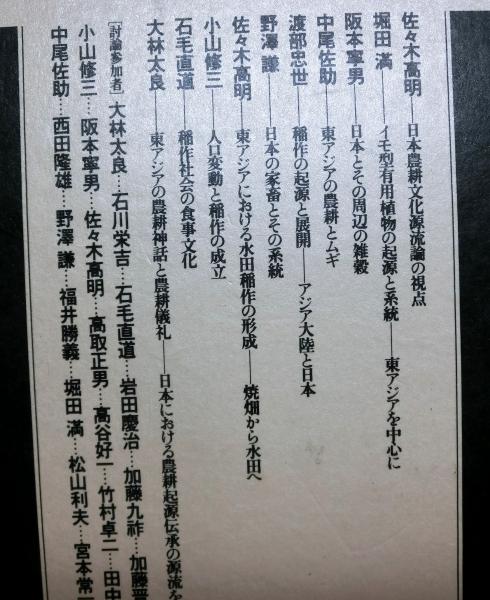 佐々木高明――日本農耕文化源流論の視点
堀田 満――イモ型有用植物の起源と系統――東アジアを中心に
阪本寧男――日本とその周辺の雑穀
中尾佐助――東アジアの農耕とムギ
渡部忠世――稲作の起源と展開――アジア大陸と日本
野澤 謙――日本の家畜とその系統
佐々木高明――東アジアにおける水田稲作の形成――焼畑から水田へ
小山修三――人口変動と稲作の成立
石毛直道――稲作社会の食事文化
大林太良――東アジアの農耕神話と農耕儀礼――日本における農耕起源伝承の源流を
[討論参加者]大林太良…石川栄吉…石毛直道…岩田慶治…加藤九祚…加藤晋
小山修三…阪本寧男…佐々木高明…高取正男…高谷好一…竹村卓二…田中
中尾佐助…西田隆雄…野澤 謙…福井勝義…堀田 満…松山利夫…宮本常一